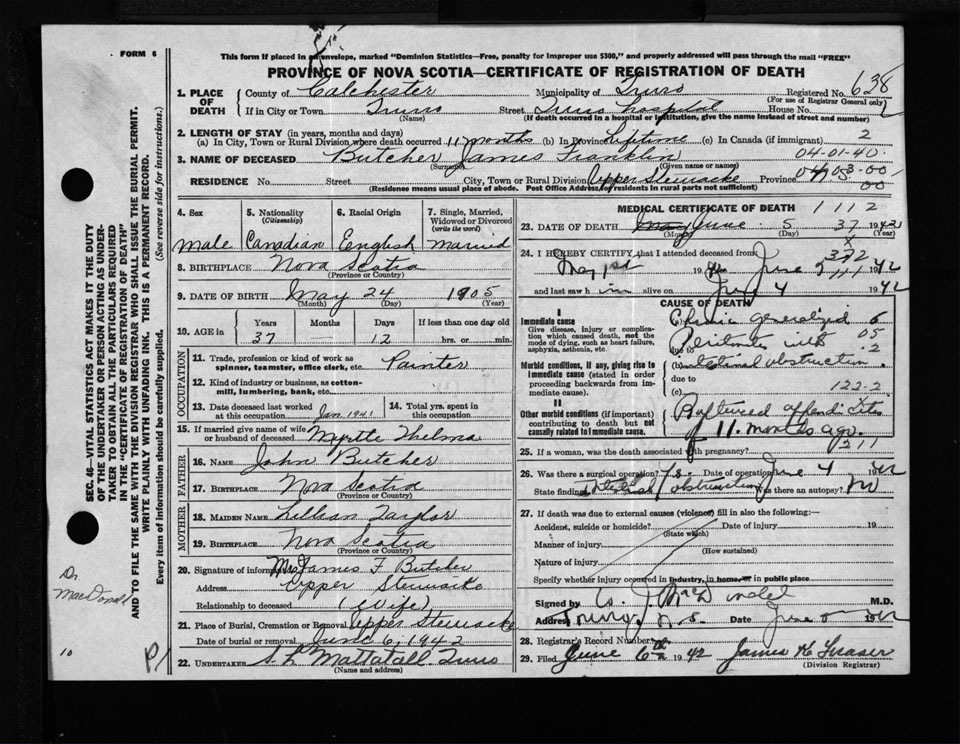 FORM 6
This form if placed in an envelope, marked "Dominion Statistics—Free, penalty for improper use $300," and properly addressed will pass through the mail "FREE"
PROVINCE OF NOVA SCOTIA—CERTIFICATE OF REGISTRATION OF DEATH
1. PLACE OF DEATH
County of Colchester Municipality of Truro Registered No. 638
(For use of Registrar General only)
If in City or Town Truro Street Truro hospital House No.
(Name) (If death occurred in a hospital or institution, give the name instead of street and number)
2. LENGTH OF STAY (in years, months and days)
(a) In City, Town or Rural Division where death occurred 11 months (b) In Province Lifetime (c) In Canada (if immigrant) 2
3. NAME OF DECEASED Butcher James Franklin 04-01-40
(Surname) (Given name or names)
RESIDENCE No. Street City, Town or Rural Division Upper Stewiacke Province N.S.
(Residence means usual place of abode. Post Office Address for residents in rural parts not sufficient)
4. Sex
Male
5. Nationality (Citizenship)
Canadian
6. Racial Origin
English
7. Single, Married, Widowed or Divorced (write the word)
Married
8. BIRTHPLACE Nova Scotia
(Province or Country)
9. DATE OF BIRTH May 24 1905
(Month) (Day) (Year)
10. AGE in Years Months Days If less than one day old
37 — 12 hrs. or min.
OCCUPATION
11. Trade, profession or kind of work as spinner, teamster, office clerk, etc. Painter
12. Kind of industry or business, as cotton-mill, lumbering, bank, etc.
13. Date deceased last worked at this occupation Jan 1941
14. Total yrs. spent in this occupation
15. If married give name of wife or husband of deceased Myrtle Thelma
FATHER
16. NAME John Butcher
17. BIRTHPLACE Nova Scotia
(Province or Country)
MOTHER
18. MAIDEN NAME Lillian Taylor
19. BIRTHPLACE Nova Scotia
(Province or Country)
20. Signature of informant Mrs James F Butcher
Address Upper Stewiacke
Relationship to deceased (Wife)
21. Place of Burial, Cremation or Removal Upper Stewiacke
Date of burial or removal June 6, 1942
22. UNDERTAKER S. L. Mattatall Truro
(Name and address)
MEDICAL CERTIFICATE OF DEATH 1112
23. DATE OF DEATH May June 5 37 1942
(Month) (Day) (Year)
24. I HEREBY CERTIFY that I attended deceased from
May 1st 1942 to June 5 1942
and last saw him alive on June 4 1942
CAUSE OF DEATH
I
Immediate cause
Give disease, injury or complication which caused death, not the mode of dying, such as heart failure, asphyxia, asthenia, etc.
(a) Chronic generalized
Peritonitis with
due to
Morbid conditions, if any, giving rise to immediate cause (stated in order proceeding backwards from immediate cause).
(b) intestinal obstruction.
due to
(c) 122-2
II
Other morbid conditions (if important) contributing to death but not causally related to immediate cause.
Ruptured appendicitis
11. months ago.
211
25. If a woman, was the death associated with pregnancy?
26. Was there a surgical operation? Yes. Date of operation June 4 1942
State findings Intestinal obstruction Was there an autopsy? No
27. If death was due to external causes (violence) fill in also the following:—
Accident, suicide or homicide? Date of injury 19
(State which)
Manner of injury
(How sustained)
Nature of injury
Specify whether injury occurred in industry, in home, or in public place
Signed by W. J. MacDonald M.D.
Address Truro, N.S. Date June 5 1942
28. Registrar's Record Number
29. Filed June 6th 1942 James K Fraser
(Division Registrar)
SEC. 46—VITAL STATISTICS ACT MAKES IT THE DUTY OF THE UNDERTAKER OR PERSON ACTING AS UNDERTAKER TO OBTAIN ALL THE PARTICULARS REQUIRED IN THE "CERTIFICATE OF REGISTRATION OF DEATH" AND TO FILE THE SAME WITH THE DIVISION REGISTRAR WHO SHALL ISSUE THE BURIAL PERMIT.
WRITE PLAINLY WITH UNFADING INK. THIS IS A PERMANENT RECORD.
Every item of information should be carefully supplied. (See reverse side for instructions.)
Dr.
MacDonald
10